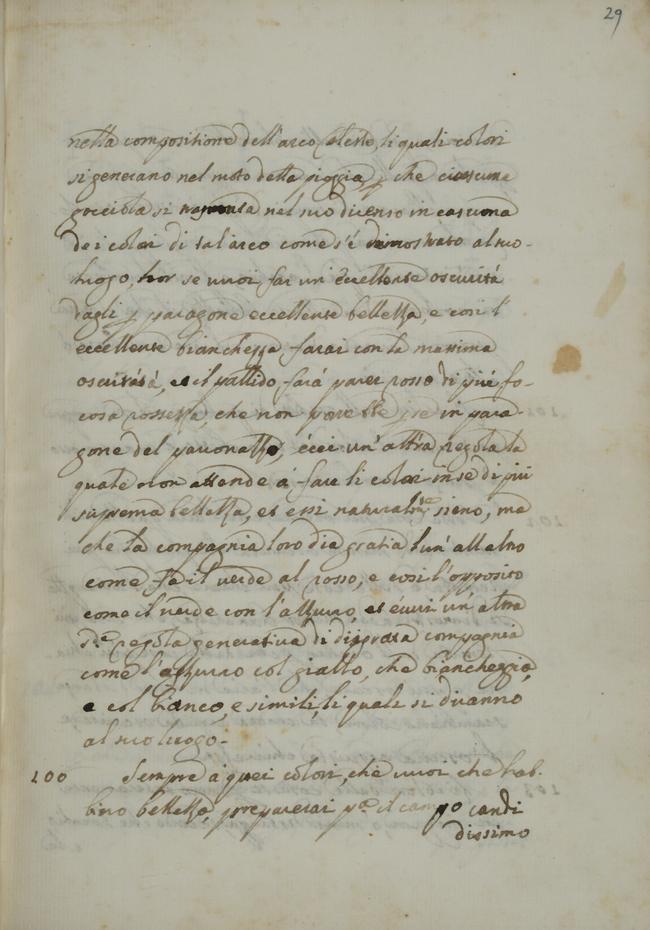 29
nella compositione dell'arco celeste, li quali colori
si generano nel moto della pioggia, p che ciascuna
gocciola si nel suo dicenso in cascuna
de i colori di tal'arco come s'é dimostrato al suo-
luogo, hor se vuoi far un'eccellente oscurità
dagli p paragone eccellente bellezza, e così l'
eccellente bianchezza farai con la massima
oscurità, et il pallido farà parer rosso di più fo-
cosa rossezza, che non parebbe p se in para-
gone del pauonazzo, écci un'altra regola la
quale non attende á fare li colori in se di più
suprema bellezza, et essi naturalm.te sieno, ma
che la compagnia loro dia gratia l'un' all'altro
come fa il verde al rosso, e così l'opposito
come il verde con l'azzurro, et éuui un'altra
2.da regola generativa di disgrata compagnia
come l'azzurro col giallo, che biancheggia,
e col bianco, e simili, li quali si diranno
al suo luogo-
100 Sempre á quei colori, che vuoi che hab-
bino bellezza, preparerai p.a il campo candi
dissimo